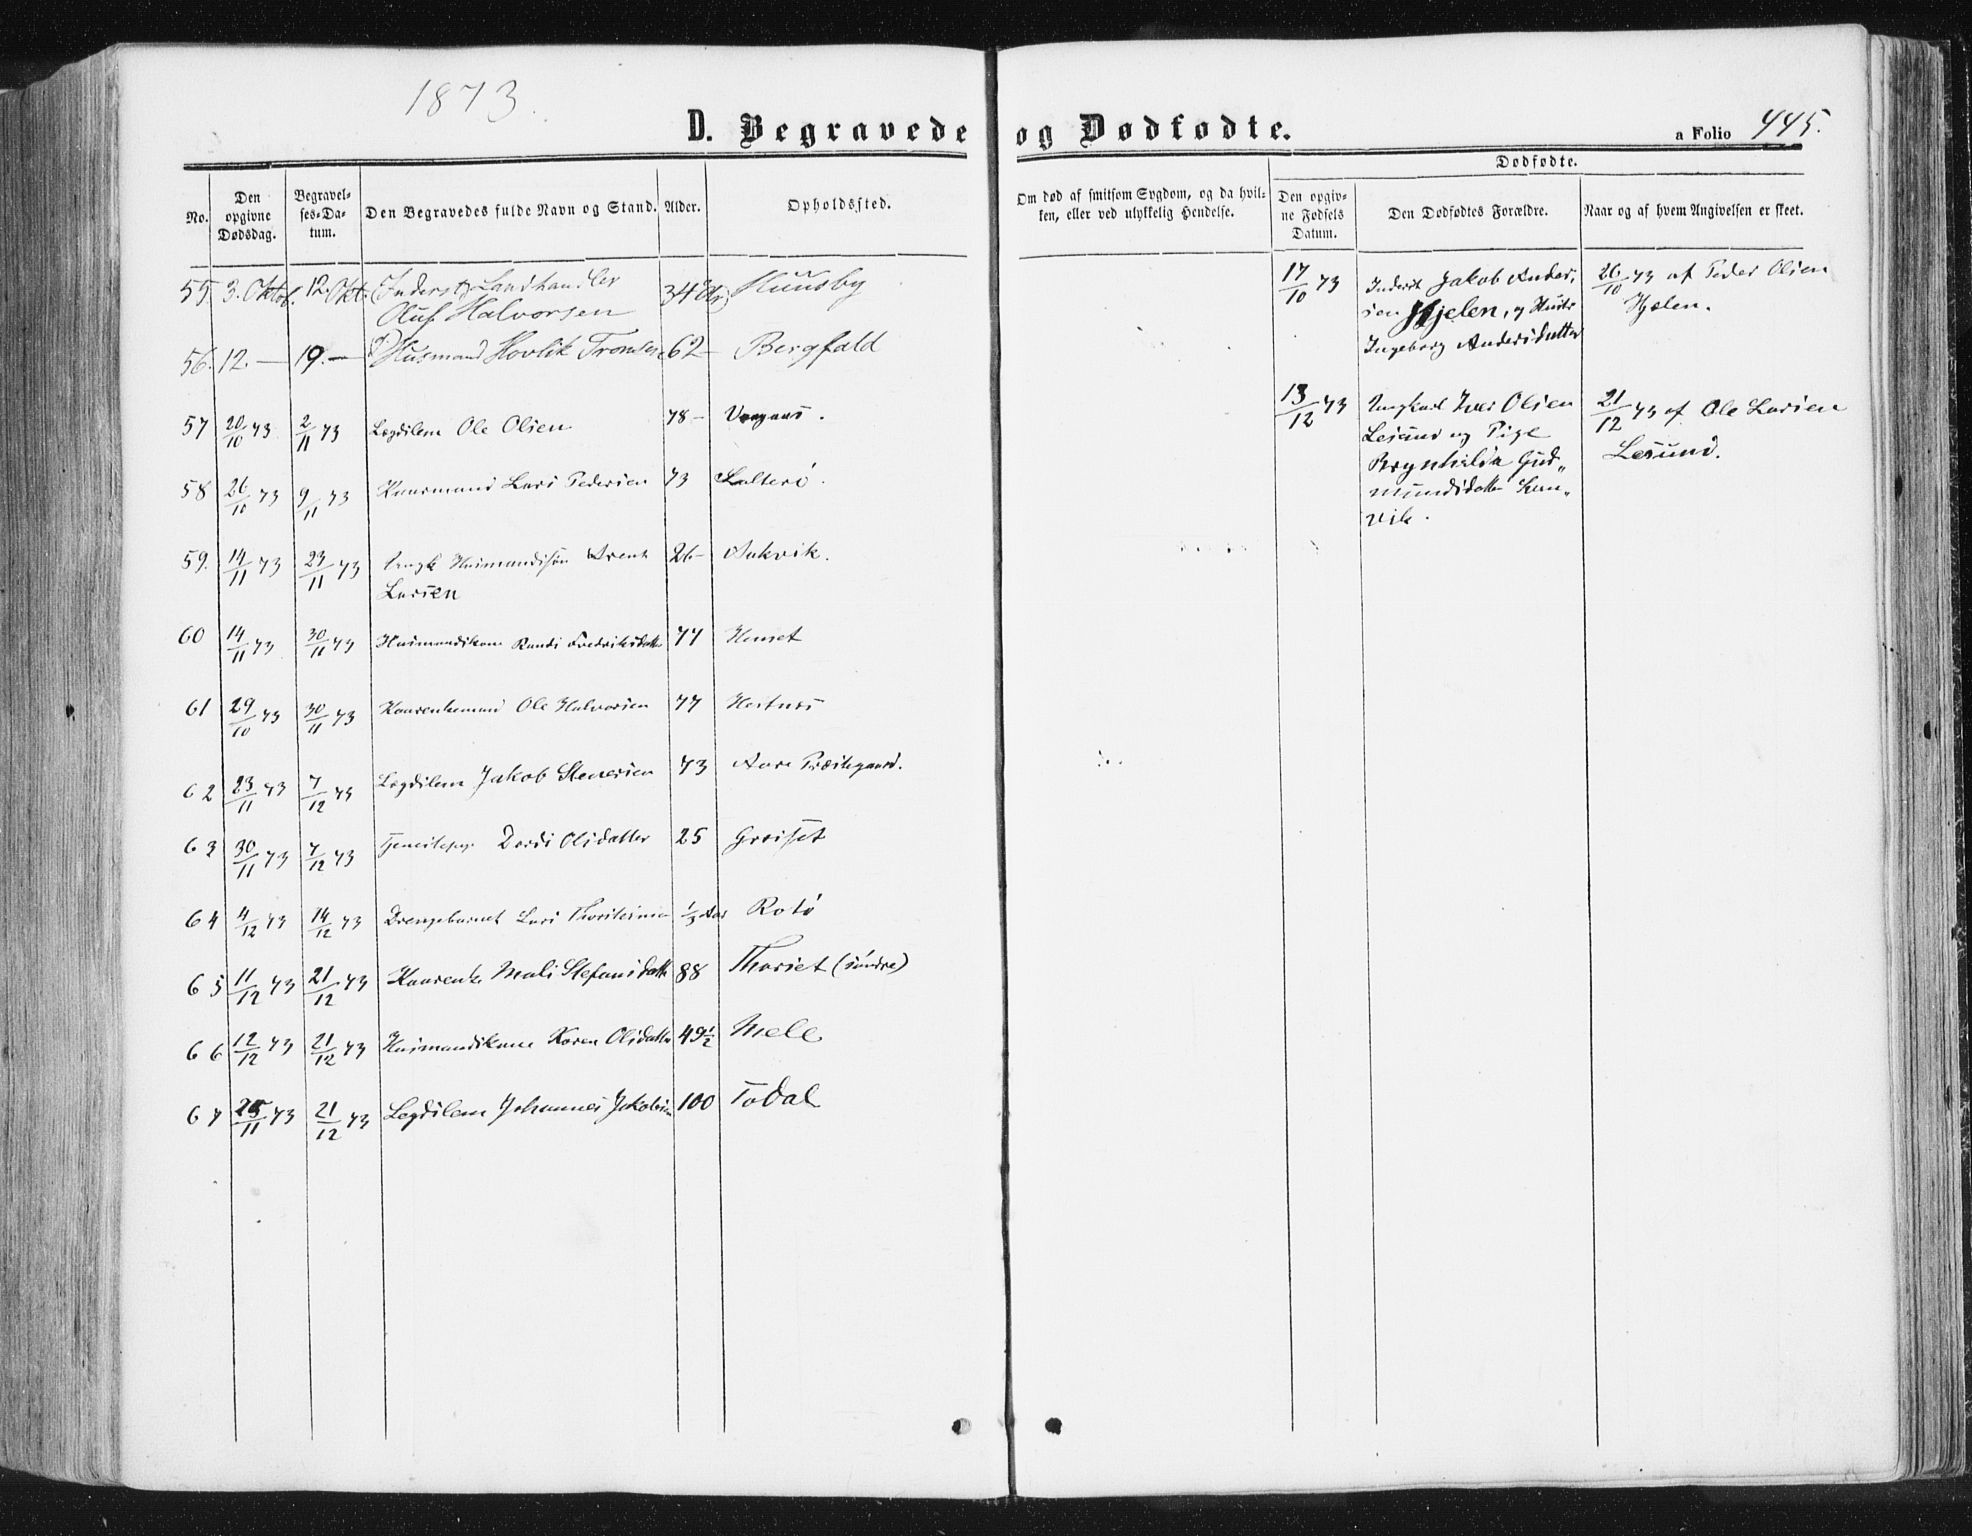 1873.
D. Begravede og Dødfødte.
a Folio 445.
No.
Den opgivne Dødsdag.
Begravelses-Datum.
Den Begravedes fulde Navn og Stand.
Alder.
Opholdssted.
Om død af smitsom Sygdom, og da hvilken, eller ved ulykkelig Hendelse.
Dødfødte.
Den opgivne Fødsels Datum.
Den Dødfødtes Forældre.
Naar og af hvem Angivelsen er skeet.
55. 3. Oktob. 12. Okt. Inderst og Landhandler 34 Kuusby
Oluf Halvorsen
56. 12. — 19. — Husmand Hovlik 62 — Bergfald
57 20/10 73 2/11 73 Lægdslem Ole Olsen 78 —
58 26/10 73 9/11 73 Kaarmand Lars Pedersen 73
59. 14/11 73 23/11 73 Ungk Husmandssøn Arent 26 — Aakvik.
Larsen
60 14/11 73 30/11 73 Husmandskone Randi Fredriksdatter 77
61 29/10 73 30/11 73 Kaarenkemand Ole Halvorsen 77 Hestnes
62 23/11 73 7/12 73 Lægdslem Jakob Stenersen 73 Aure Præstegaard.
63 30/11 73 7/12 73 Dordi Olsdatter 25 Grøiset
64 4/12 73 14/12 73 Drengebarnet Lars Thorsteinsen 1/3 Aar Rotø
65 11/12 73 21/12 73 Kaarenke Mali Stefansdatter 88 Thorset (søndre)
66 12/12 73 21/12 73 Husmandskone Karen Olsdatter 49 1/2 Mele
67 25/11 73 21/12 73 Lægdslem Johannes Jakobsen 100 Todal
17/10 73 Inderst Jakob Anders, 26/10 73 af Peder Olsen
sen Hjelen, og Hustr Hjælen.
Ingeborg Andersdatter
13/12 73 Ungkarl Iver Olsen 21/12 73 af Ole Larsen
Lesund og Pige Lesund.
Brynhilda Gud„
mundsdatter
vik.